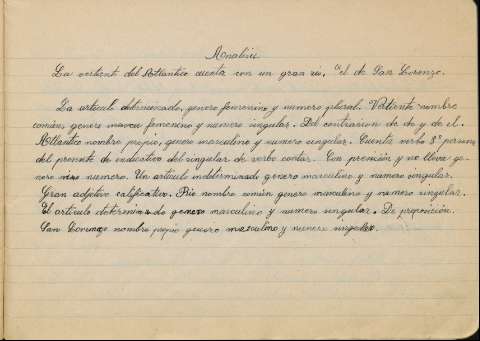 Analisis
La vertient del Atlantico cuenta con un gran rio. el de San Lorenzo.
La articulo determinado, genero femenino y numero plural. Vertiente nombre
comun, genero femenino y numero singular. Del contracion de de y de el.
Atlantico nombre propio, genero masculino y numero singular. Cuenta verbo 3ª persona
del presente de indicativo del singular de verbo contar. Con preposición y no lleva ge-
nero ni numero. Un articulo indeterminado genero masculino y numero singular.
Gran adjetivo calificativo. Rio nombre común genero masculino y numero singular.
El articulo determinado genero masculino y numero singular. De preposición.
San Lorenzo nombre propio genero masculino y numero singular.